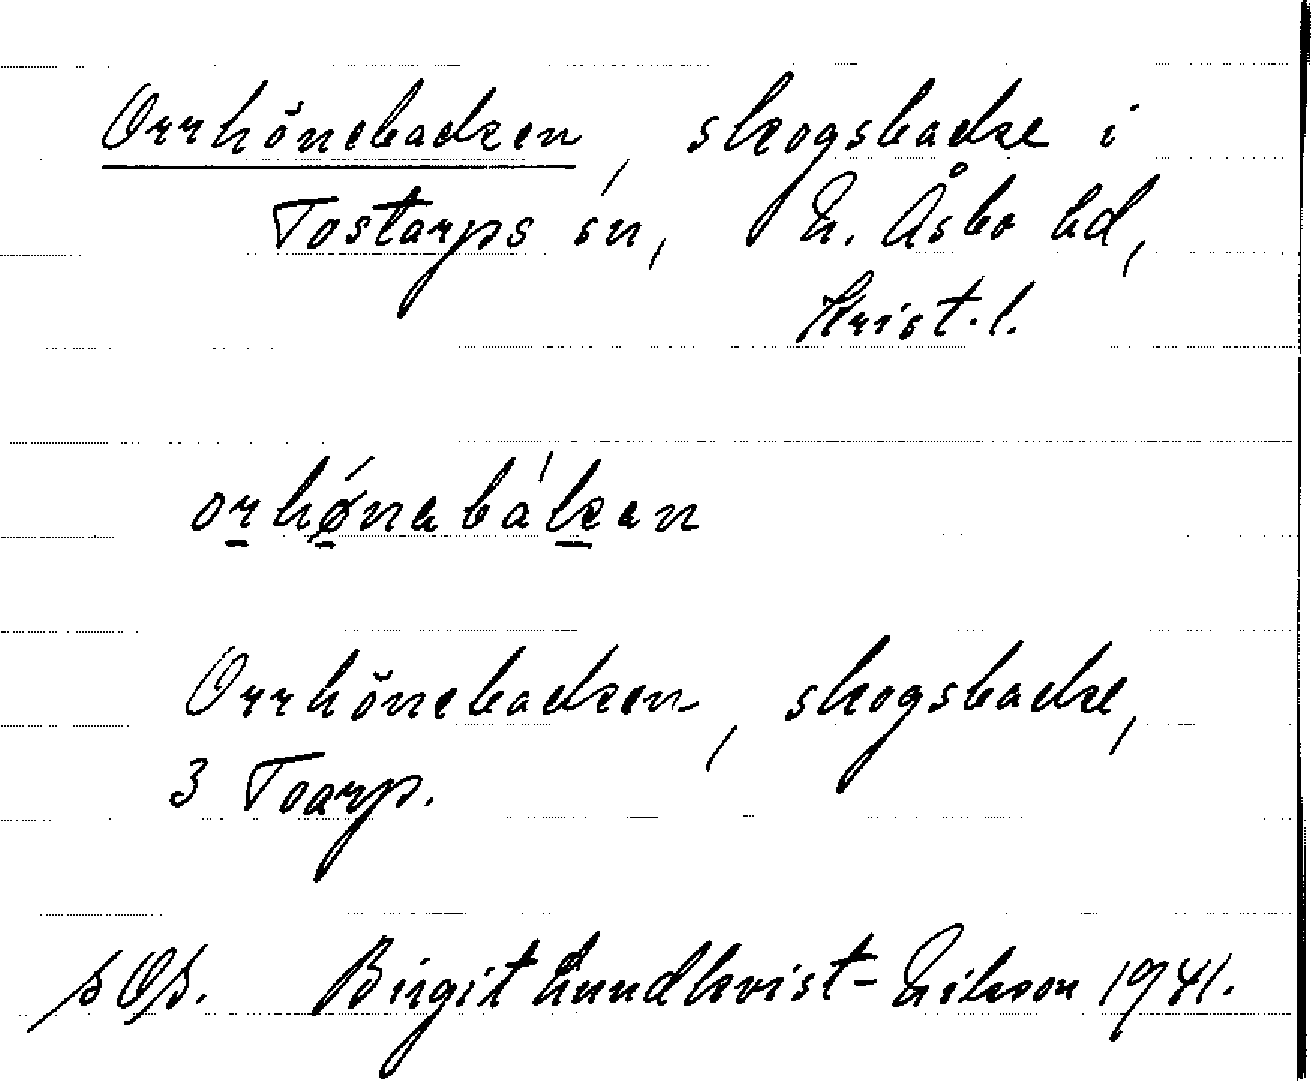 Orrhönebacken, skogsbacke i
Tostarps sn, N. Åsbo hd,
Krist. l.
orhǿnabákan
Orrhönebacken, skogsbacke,
3 Toarp.
Birgit Lundkvist-Erikson 1941.